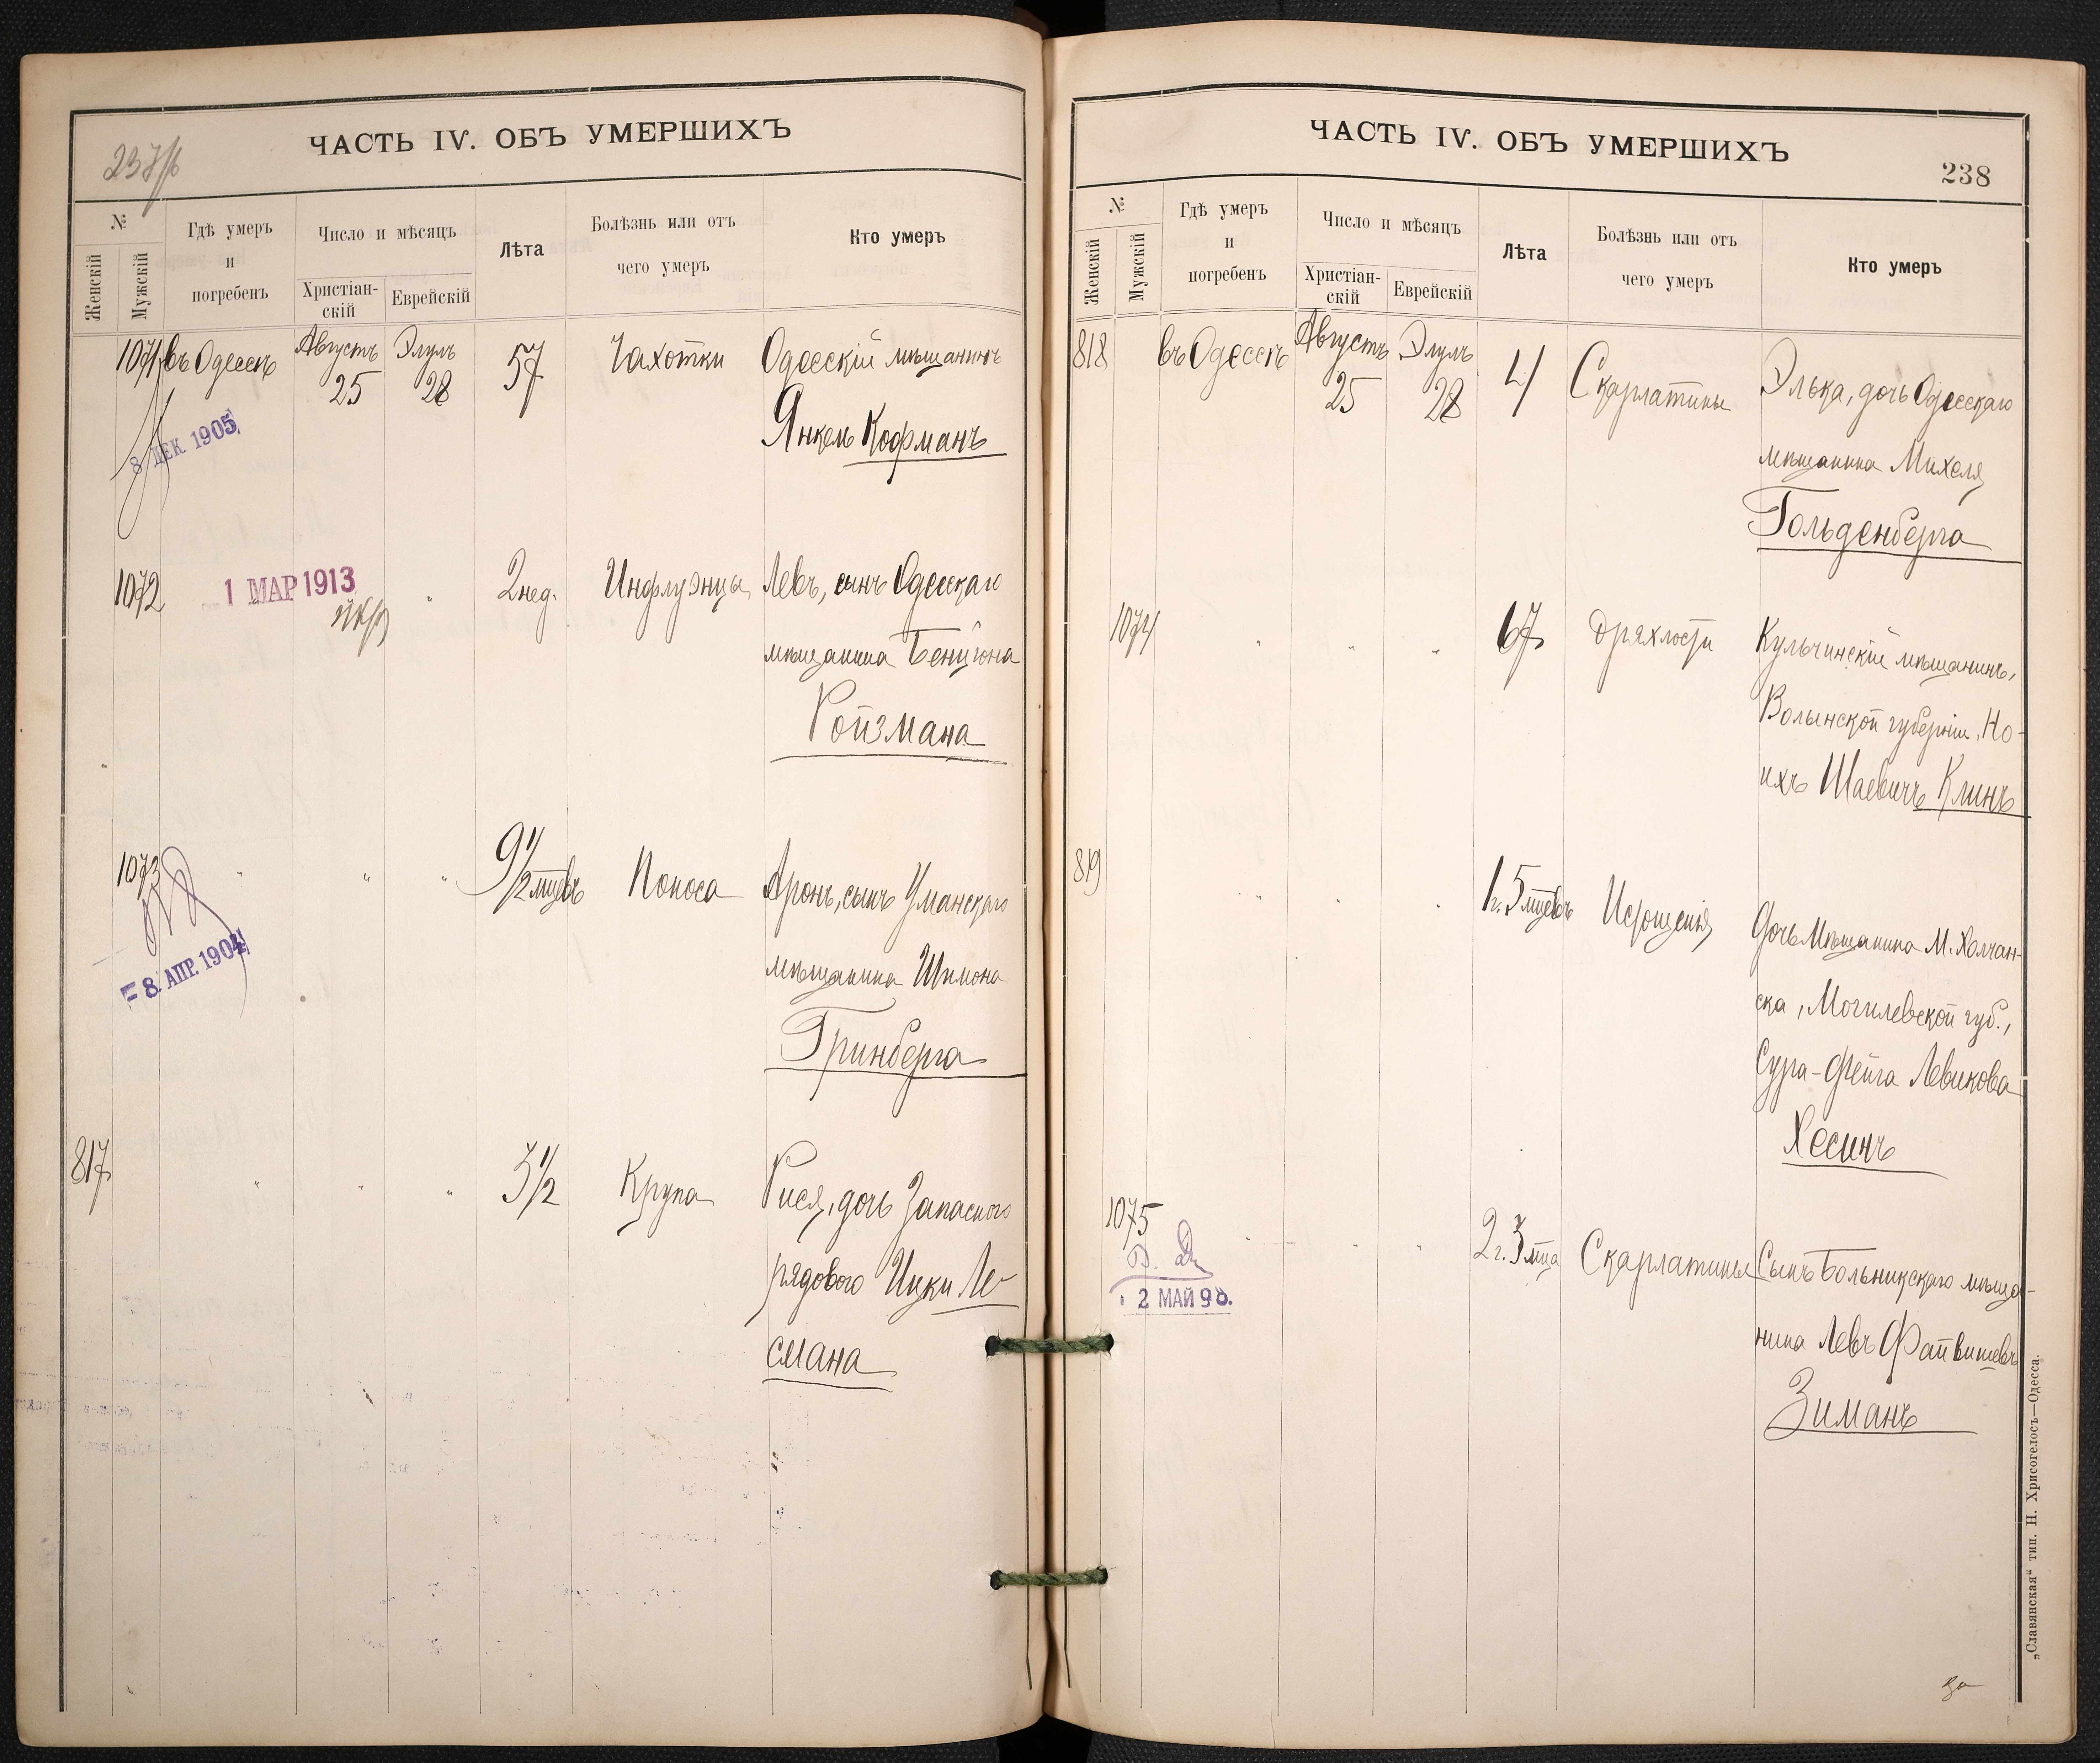 ЧАСТЬ IV. ОБЪ УМЕРШИХЪ
№
Женскій
Мужскій
Гдѣ умеръ
и
погребенъ
Число и мѣсяцъ
Христіан-
скій
Еврейскій
Лѣта
Болѣзнь или отъ
чего умеръ
Кто умеръ
1071 въ Одессѣ Августъ Элулъ 57 Чахотки Одесскій мѣщанинъ
25 28
Янкель Кофманъ
8 ДЕК. 1905
1072 2 нед. Инфлуэнцы Левъ, сынъ Одесскаго
1 МАР 1913
мѣщанина Бенціона
Ройзмана
1073 " " " 9 1/2 мцевъ Поноса Аронъ, сынъ Уманскаго
мѣщанина Шимона
8 АПР. 1904
Гринберга
817 " " " 3 1/2 Крупа Рися, дочь Запаснаго
рядового Ицки Ле-
смана
ЧАСТЬ IV. ОБЪ УМЕРШИХЪ
238
№
Женскій
Мужскій
Гдѣ умеръ
и
погребенъ
Число и мѣсяцъ
Христіан-
скій
Еврейскій
Лѣта
Болѣзнь или отъ
чего умеръ
Кто умеръ
818 въ Одессѣ Августъ Элулъ 4 Скарлатины Элька, дочь Одесскаго
25 28
мѣщанина Михеля
Гольденберга
1074 " " " 67 Дряхлости Кульчинскій мѣщанинъ,
Волынской губерніи, Но-
ихъ Шаевичъ Клинъ
819 " " " 1 г. 5 мцевъ Истощенія Дочь Мѣщанина М. Холчан-
ска, Могилевской губ.,
Сура-Фейга Левикова
Хесинъ
1075 " " " 2 г. 3 мца Скарлатины Сынъ Больникскаго мѣща-
нина Левъ Файвишевъ
2 МАЙ 98.
Зиманъ
„Славянская“ тип. Н. Хрисогелосъ—Одесса.